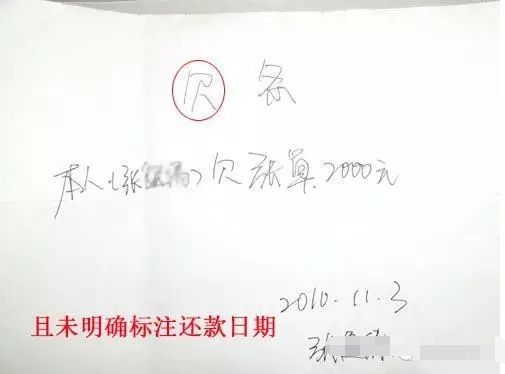 欠条
本人(张 )欠张单2000元
2010.11.3
且未明确标注还款日期
张